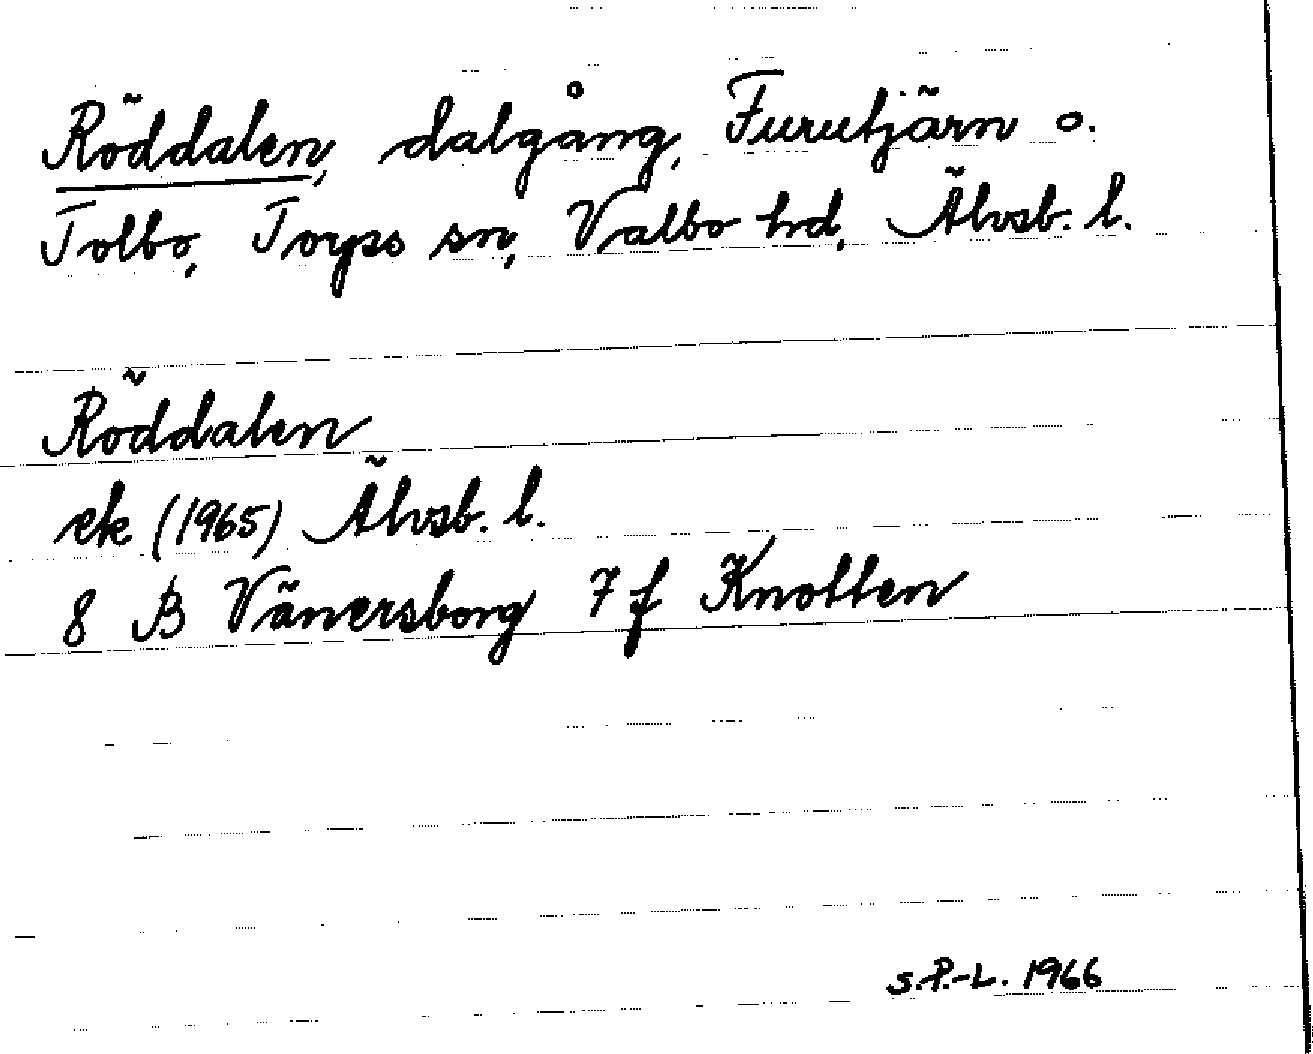 Röddalen, dalgång, Furutjärn o.
Tolbo, Torps sn, Valbo hd, Älvsb. l.
Röddalen
ek (1965) Älvsb. l.
8 B Vänersborg 7 f Knotten
S.P.-L. 1966